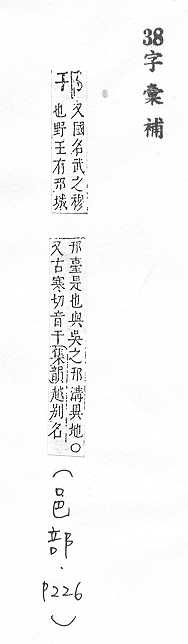 38字彙補
邘 又國名武之穆
于 也野王有邘城
邘臺是也與吳之邗溝異地○
又古寒切音干集韻越別名
(邑部.
P226)